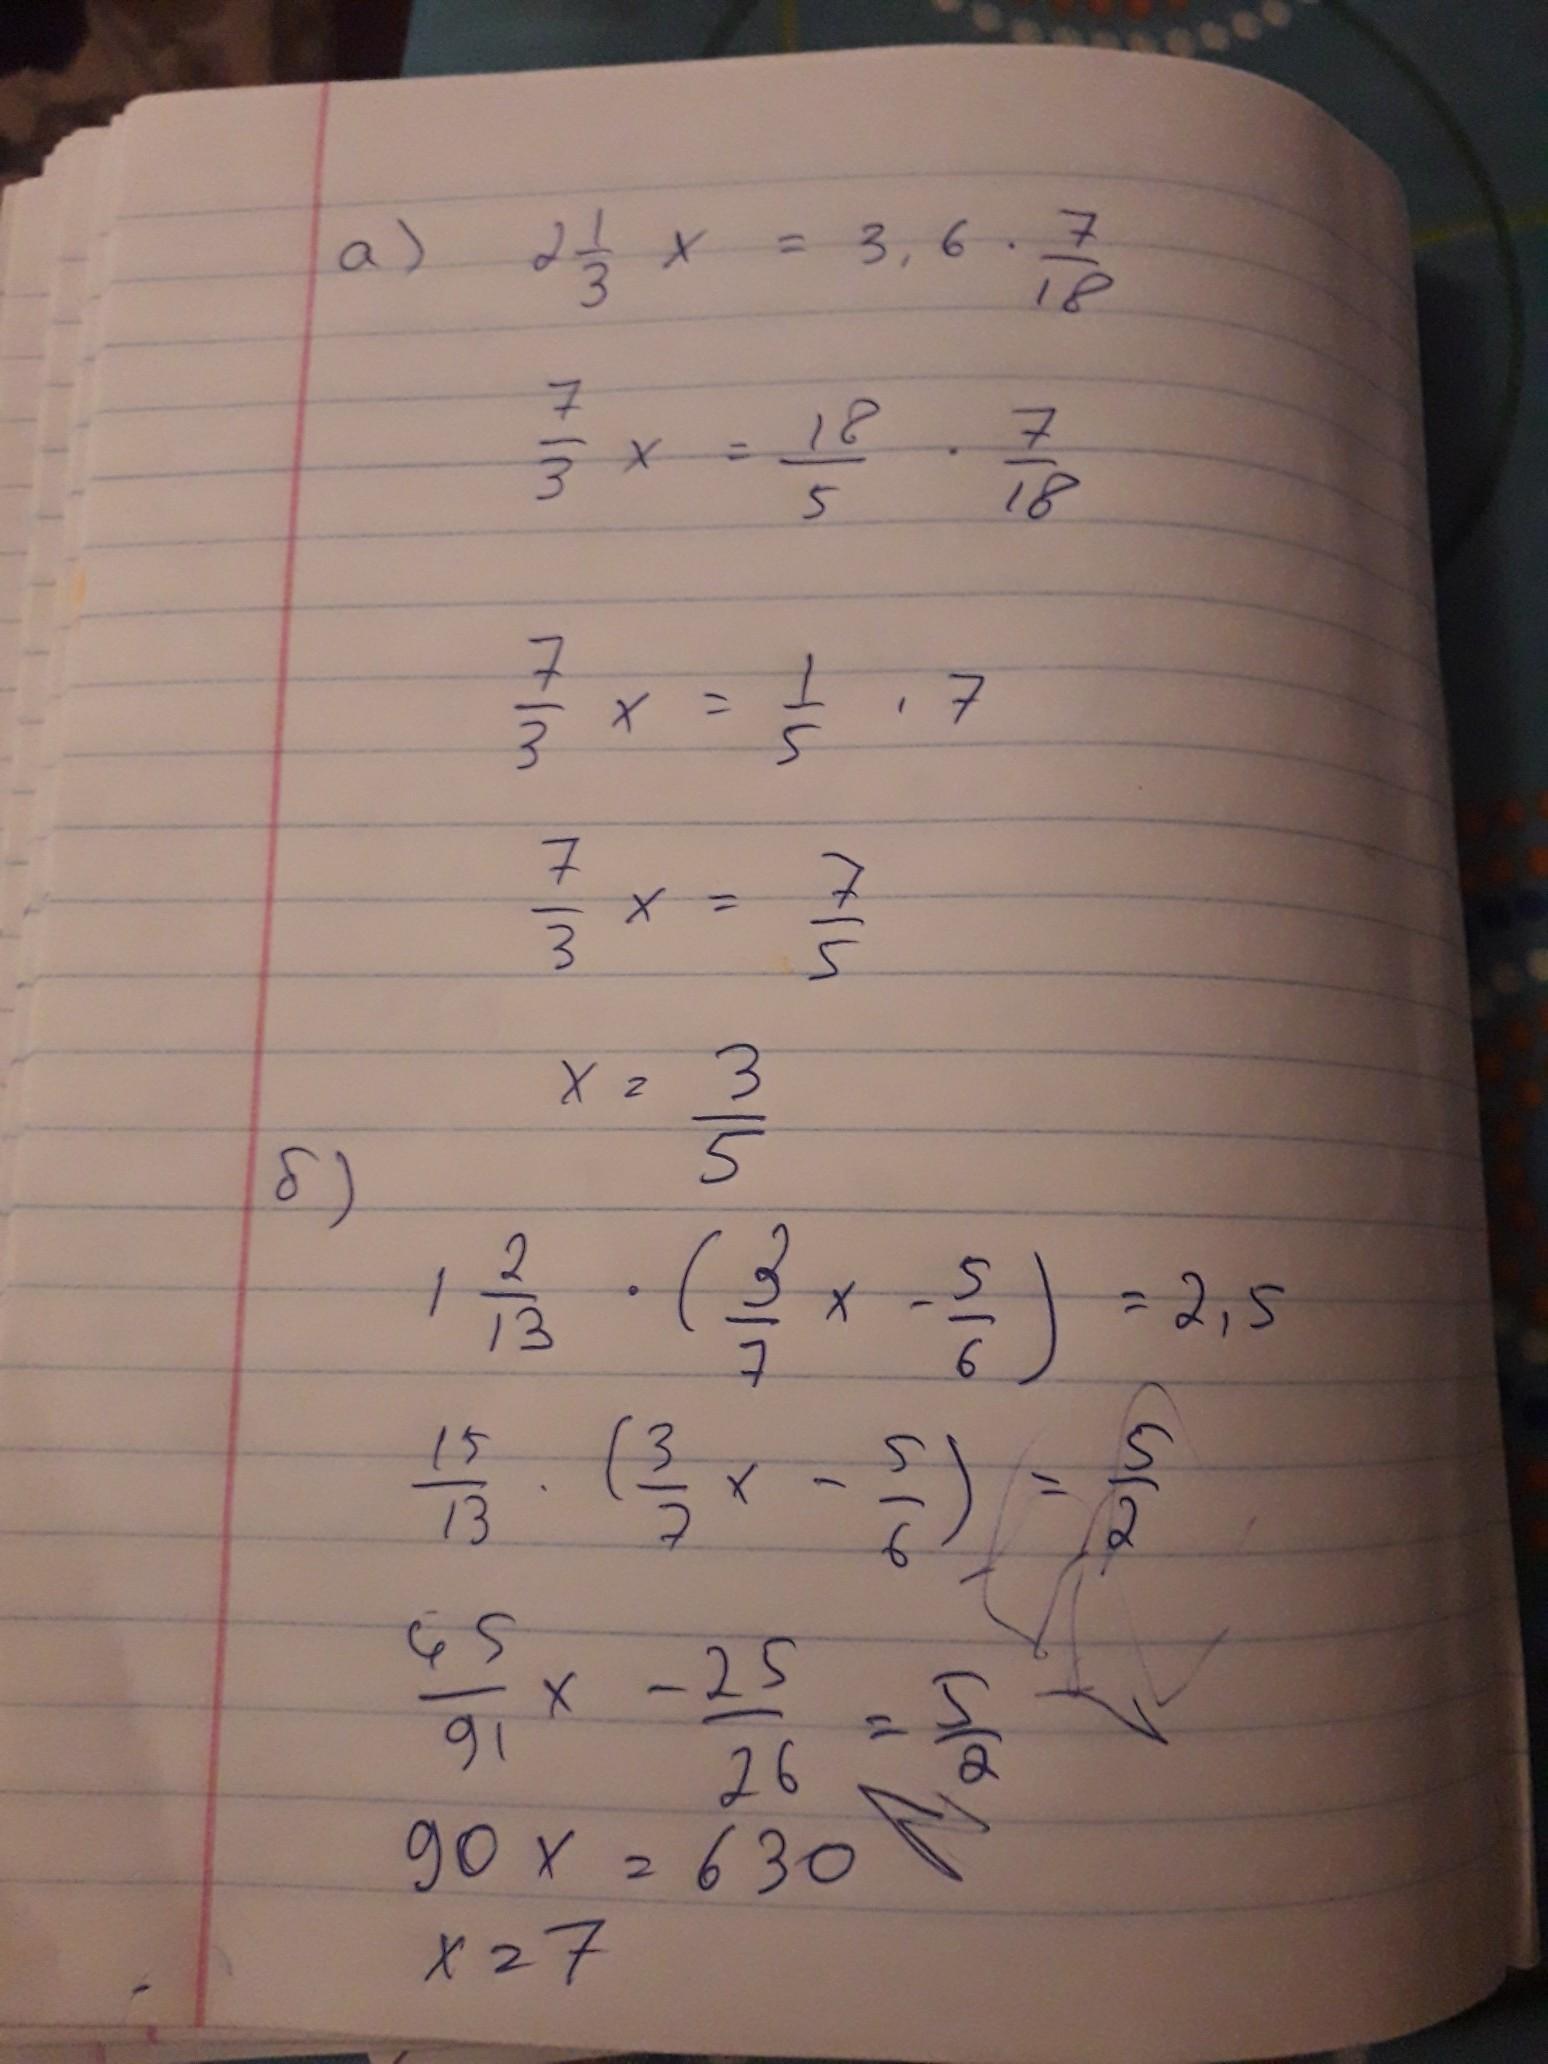 а) 2 1/3 x = 3,6 · 7/18
7/3 x = 18/5 · 7/18
7/3 x = 1/5 · 7
7/3 x = 7/5
x = 3/5
б)
1 2/13 · (3/7 x - 5/6) = 2,5
15/13 · (3/7 x - 5/6) = 5/2
45/91 x - 25/26 = 5/2
90 x = 630
x = 7